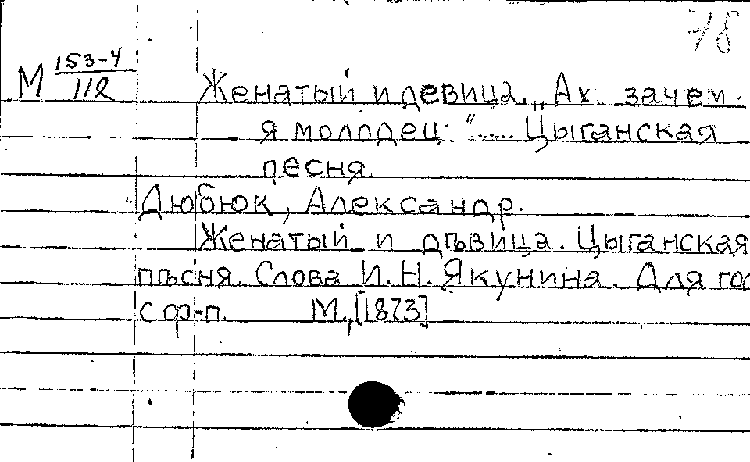 78
М 153-4/112
Женатый и девица. „Ах зачем
я молодец "..... Цыганская
песня.
Дюбюк, Александр.
Женатый и дѣвица. Цыганская
пѣсня. Слова И. Н. Якунина. Для гол
с ф-п. М., [1873]